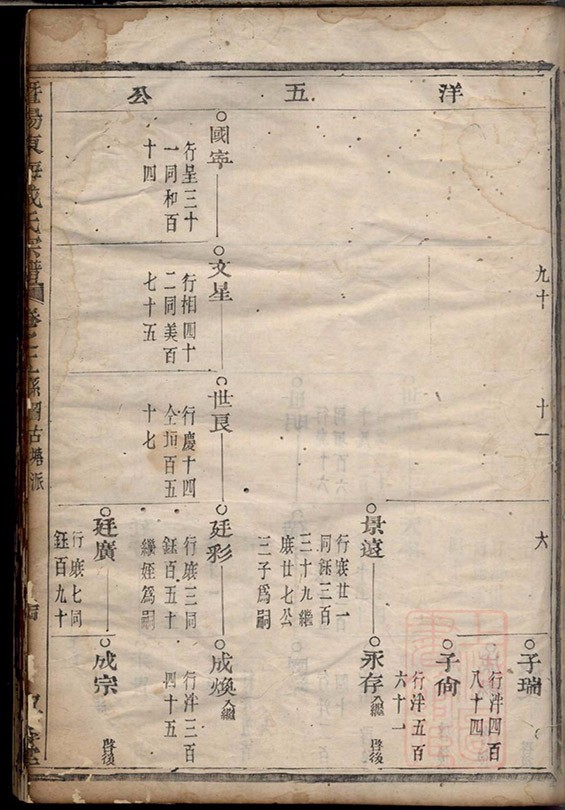 洋五公
九十
十一
大
○子瑞
行洋四百
八十四
○子尙
行洋五百
六十一
○景遠
行廣廿一
同鈺二百
三十九繼
廣廿七公
三子爲嗣
○永存入繼
啓後
○國寧
行呈三十
一同和百
十四
○文星
行相四十
二同美百
七十五
○世良
行慶十四
仝百五
十七
○廷彩
行廣三同
鈺百五十
繼姪爲嗣
○成煥入繼
行洋三百
四十五
○廷廣
行廣七同
鈺百九十
○成宗
啓後
暨陽東海戚氏宗譜
卷之
古塘派